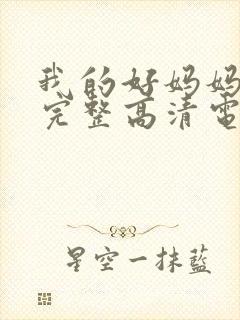 我的好妈妈
完整高清电
星空一抹藍